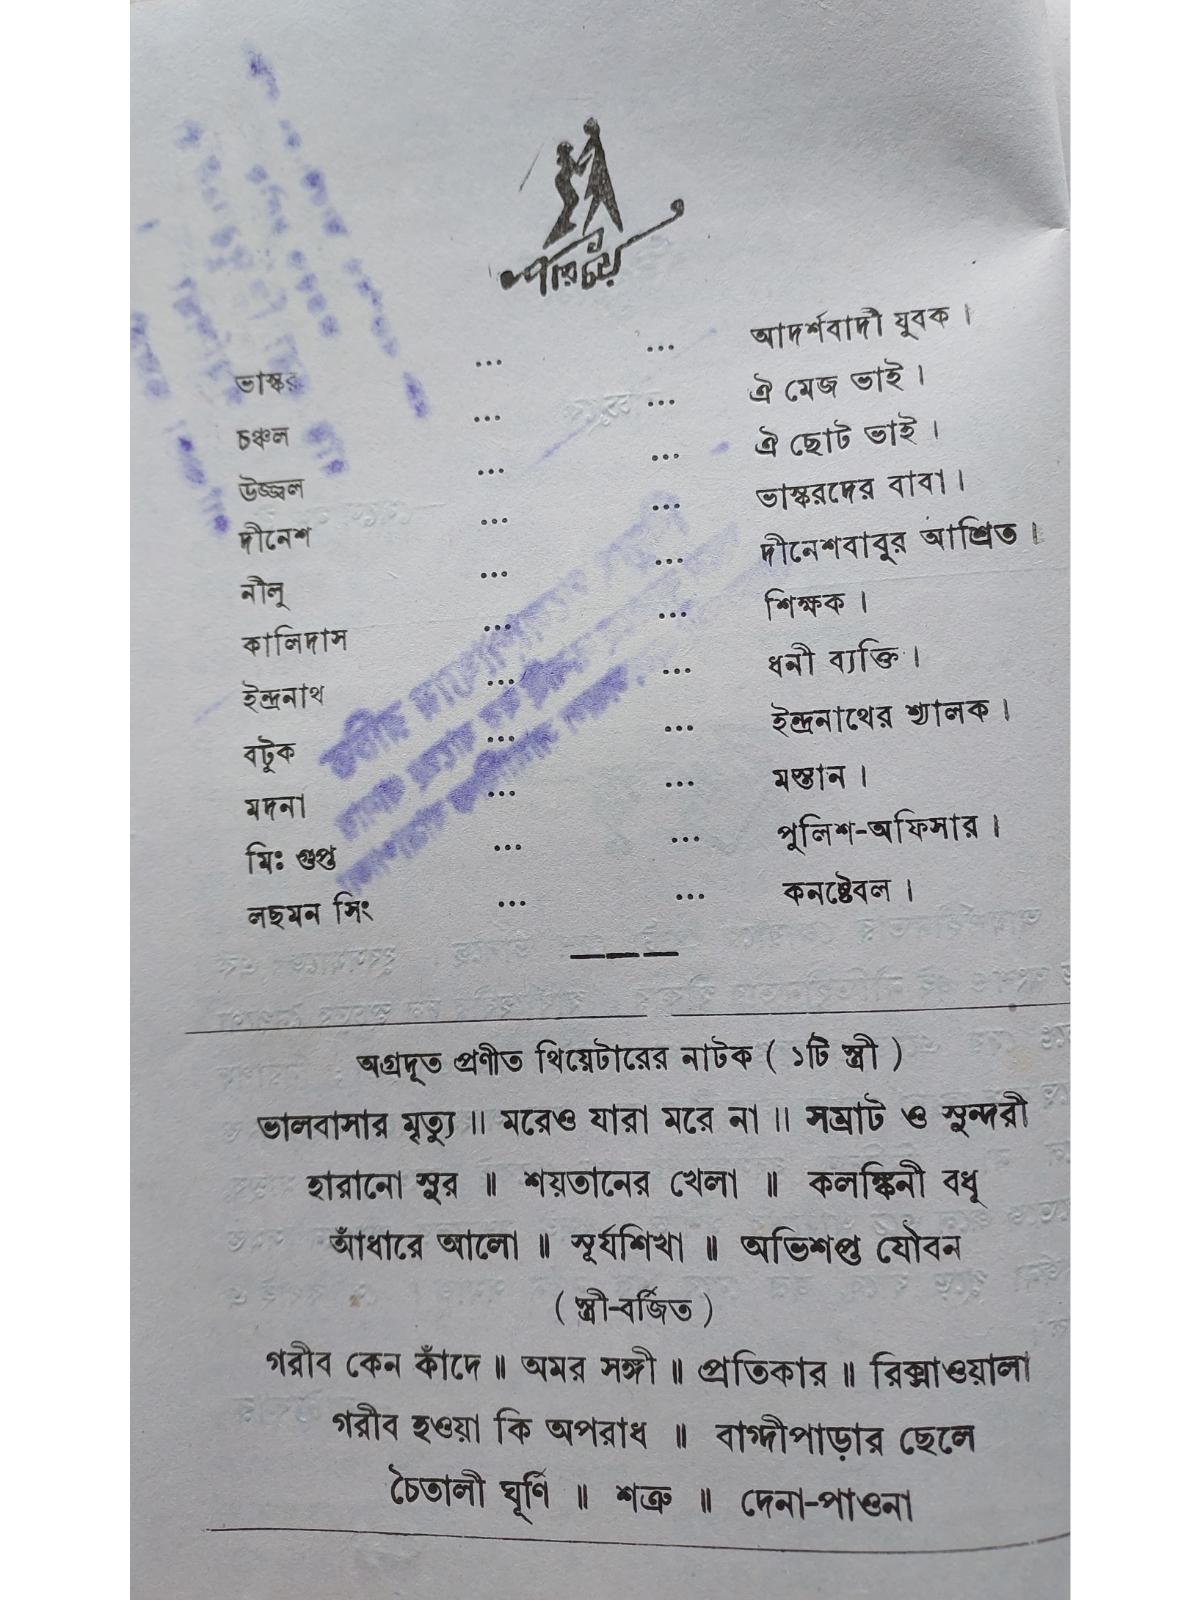 পরিচয়
ভাস্কর ... ... আদর্শবাদী যুবক।
চঞ্চল ... ... ঐ মেজ ভাই।
উজ্জ্বল ... ... ঐ ছোট ভাই।
দীনেশ ... ... ভাস্করদের বাবা।
নীলু ... ... দীনেশবাবুর আশ্রিত।
কালিদাস ... ... শিক্ষক।
ইন্দ্রনাথ ... ... ধনী ব্যক্তি।
বটুক ... ... ইন্দ্রনাথের শ্যালক।
মদনা ... ... মস্তান।
মিঃ গুপ্ত ... ... পুলিশ-অফিসার।
লছমন সিং ... ... কনষ্টেবল।
অগ্রদূত প্রণীত থিয়েটারের নাটক ( ১টি স্ত্রী )
ভালবাসার মৃত্যু ॥ মরেও যারা মরে না ॥ সম্রাট ও সুন্দরী
হারানো সুর ॥ শয়তানের খেলা ॥ কলঙ্কিনী বধূ
আঁধারে আলো ॥ সূর্যশিখা ॥ অভিশপ্ত যৌবন
( স্ত্রী-বর্জিত )
গরীব কেন কাঁদে ॥ অমর সঙ্গী ॥ প্রতিকার ॥ রিক্সাওয়ালা
গরীব হওয়া কি অপরাধ ॥ বাগ্দীপাড়ার ছেলে
চৈতালী ঘূর্ণি ॥ শত্রু ॥ দেনা-পাওনা